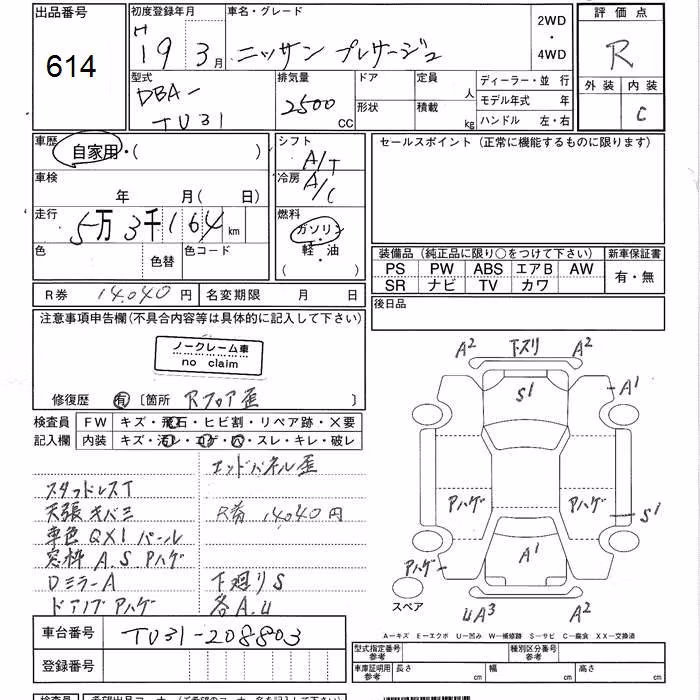 出品番号
614
初度登録年月
H 19 3月
車名・グレード
ニッサン プレサージュ
2WD
・
4WD
評価点
R
外装 内装
C
型式
DBA-
TU31
排気量
2500
CC
ドア
形状
定員
人
積載
kg
ディーラー・並 行
モデル年式 年
ハンドル 左・右
車歴
自家用・( )
車検
年 月( 日)
走行
5万3千164km
色 色替 色コード
シフト
A/T
冷房
A/C
燃料
ガソリン
・
軽・油
( )
セールスポイント (正常に機能するものに限ります)
装備品 (純正品に限り○をつけて下さい)
PS PW ABS エアB AW
SR ナビ TV カワ
新車保証書
有・無
R券 14,040円
名変期限 月 日
後日品
注意事項申告欄(不具合内容等は具体的に記入して下さい)
ノークレーム車
no claim
修復歴 有 〔箇所 Rフロア歪 〕
検査員
記入欄
FW キズ・飛石・ヒビ割・リペア跡・×要
内装 キズ・汚レ・コゲ・穴・スレ・キレ・破レ
エンドパネル歪
スタッドレスT
天張キバミ
R済 14,040円
車色QX1パール
窓枠A.S Pハゲ
DミラーA 下廻りS
ドアノブPハゲ 各A.U
車台番号 TU31-208803
登録番号
A2 下スリ A2
S1
A1
Pハゲ Pハゲ
S1
A1
Pハゲ
スペア
UA3 A2
A―キズ E―エクボ U―凹み W―補修跡 S―サビ C―腐食 XX―交換済
型式指定番号
参考
種別区分番号
参考
車庫証明用
参考
長さ cm 幅 cm 高さ cm